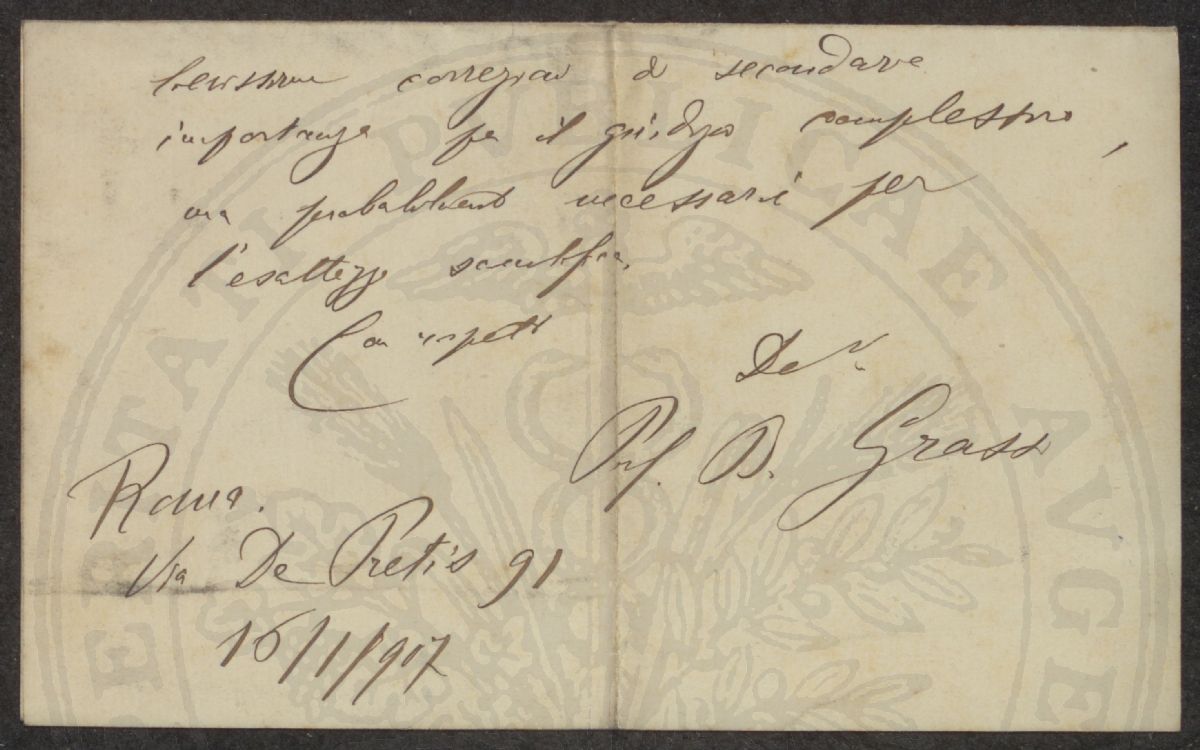 lievissime correzioni di secondaria
importanza per il giudizio complessivo,
ma probabilmente necessarie per
l'esattezza scientifica.
Con rispetto
Dev.
Prof. B. Grassi
Roma.
Via De Pretis 91
16/1/907